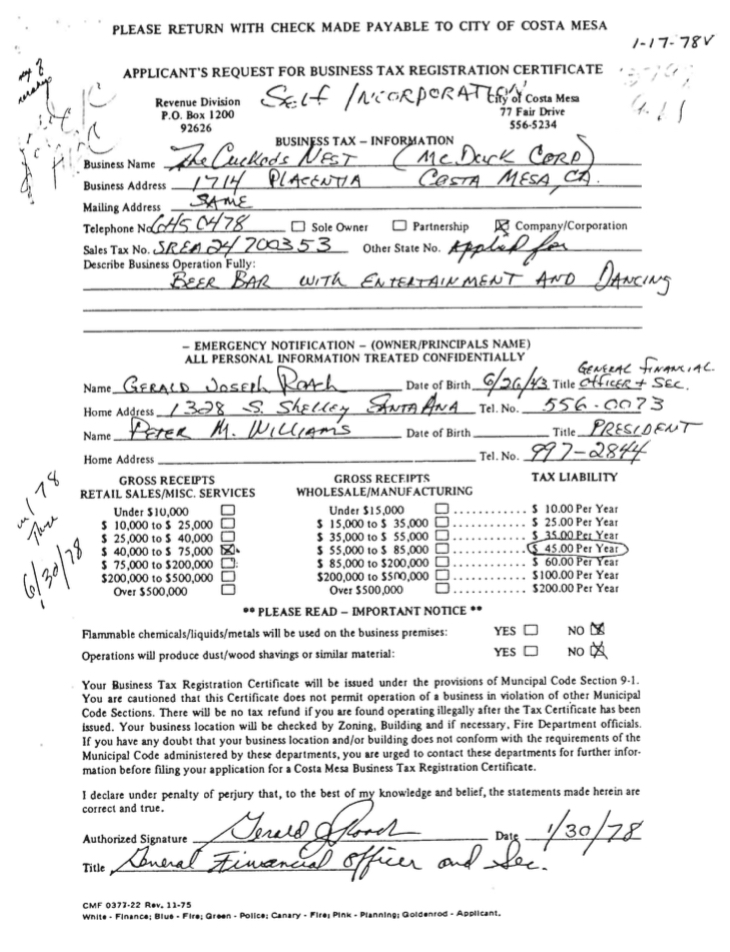 PLEASE RETURN WITH CHECK MADE PAYABLE TO CITY OF COSTA MESA
1-17-78
APPLICANT'S REQUEST FOR BUSINESS TAX REGISTRATION CERTIFICATE
SELF INCORPORATION
Revenue Division City of Costa Mesa
P.O. Box 1200 77 Fair Drive
92626 556-5234
BUSINESS TAX – INFORMATION
Business Name The Cuckoo's NEST (Mc Duck CORP)
Business Address 1714 PLACENTIA COSTA MESA, CA.
Mailing Address SAME
Telephone No. 645 0478 Sole Owner Partnership Company/Corporation
Sales Tax No. SREA 24 700353 Other State No. Applied for
Describe Business Operation Fully:
BEER BAR WITH ENTERTAINMENT AND DANCING
– EMERGENCY NOTIFICATION – (OWNER/PRINCIPALS NAME)
ALL PERSONAL INFORMATION TREATED CONFIDENTIALLY
GENERAL FINANCIAL
Name GERALD JOSEPH ROACH Date of Birth 6/26/43 Title OFFICER + SEC.
Home Address 1328 S. SHELLEY SANTA ANA Tel. No. 556-0073
Name PETER M. WILLIAMS Date of Birth Title PRESIDENT
Home Address Tel. No. 997-2844
GROSS RECEIPTS GROSS RECEIPTS TAX LIABILITY
RETAIL SALES/MISC. SERVICES WHOLESALE/MANUFACTURING
Under $10,000 Under $15,000 ............ $ 10.00 Per Year
$ 10,000 to $ 25,000 $ 15,000 to $ 35,000 ............ $ 25.00 Per Year
$ 25,000 to $ 40,000 $ 35,000 to $ 55,000 ............ $ 35.00 Per Year
$ 40,000 to $ 75,000 $ 55,000 to $ 85,000 ............ $ 45.00 Per Year
$ 75,000 to $200,000 $ 85,000 to $200,000 ............ $ 60.00 Per Year
$200,000 to $500,000 $200,000 to $500,000 ............ $100.00 Per Year
Over $500,000 Over $500,000 ............ $200.00 Per Year
1/78
Thru
6/30/78
** PLEASE READ – IMPORTANT NOTICE **
Flammable chemicals/liquids/metals will be used on the business premises: YES NO
Operations will produce dust/wood shavings or similar material: YES NO
Your Business Tax Registration Certificate will be issued under the provisions of Muncipal Code Section 9-1.
You are cautioned that this Certificate does not permit operation of a business in violation of other Municipal
Code Sections. There will be no tax refund if you are found operating illegally after the Tax Certificate has been
issued. Your business location will be checked by Zoning, Building and if necessary, Fire Department officials.
If you have any doubt that your business location and/or building does not conform with the requirements of the
Municipal Code administered by these departments, you are urged to contact these departments for further infor-
mation before filing your application for a Costa Mesa Business Tax Registration Certificate.
I declare under penalty of perjury that, to the best of my knowledge and belief, the statements made herein are
correct and true.
Authorized Signature Gerald J Roach Date 1/30/78
Title General Financial Officer and Sec.
CMF 0377-22 Rev. 11-75
White - Finance; Blue - Fire; Green - Police; Canary - Fire; Pink - Planning; Goldenrod - Applicant.